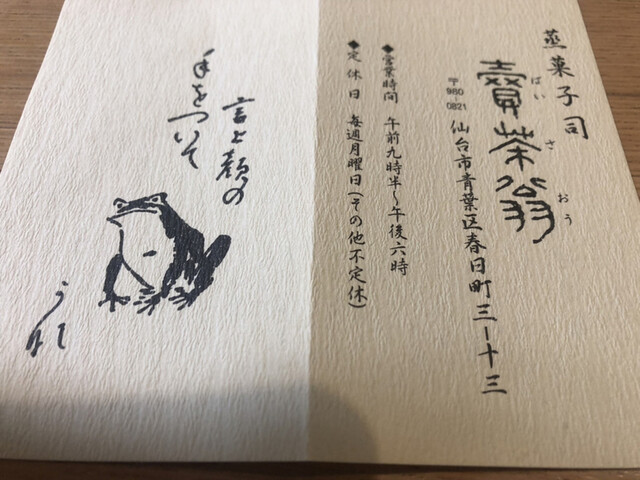 蒸菓子司
賣茶翁
ばいさおう
〒980-0821 仙台市青葉区春日町三ー十三
◆営業時間 午前九時半～午後六時
◆定休日 毎週月曜日（その他不定休）
言上顔の
手をついて